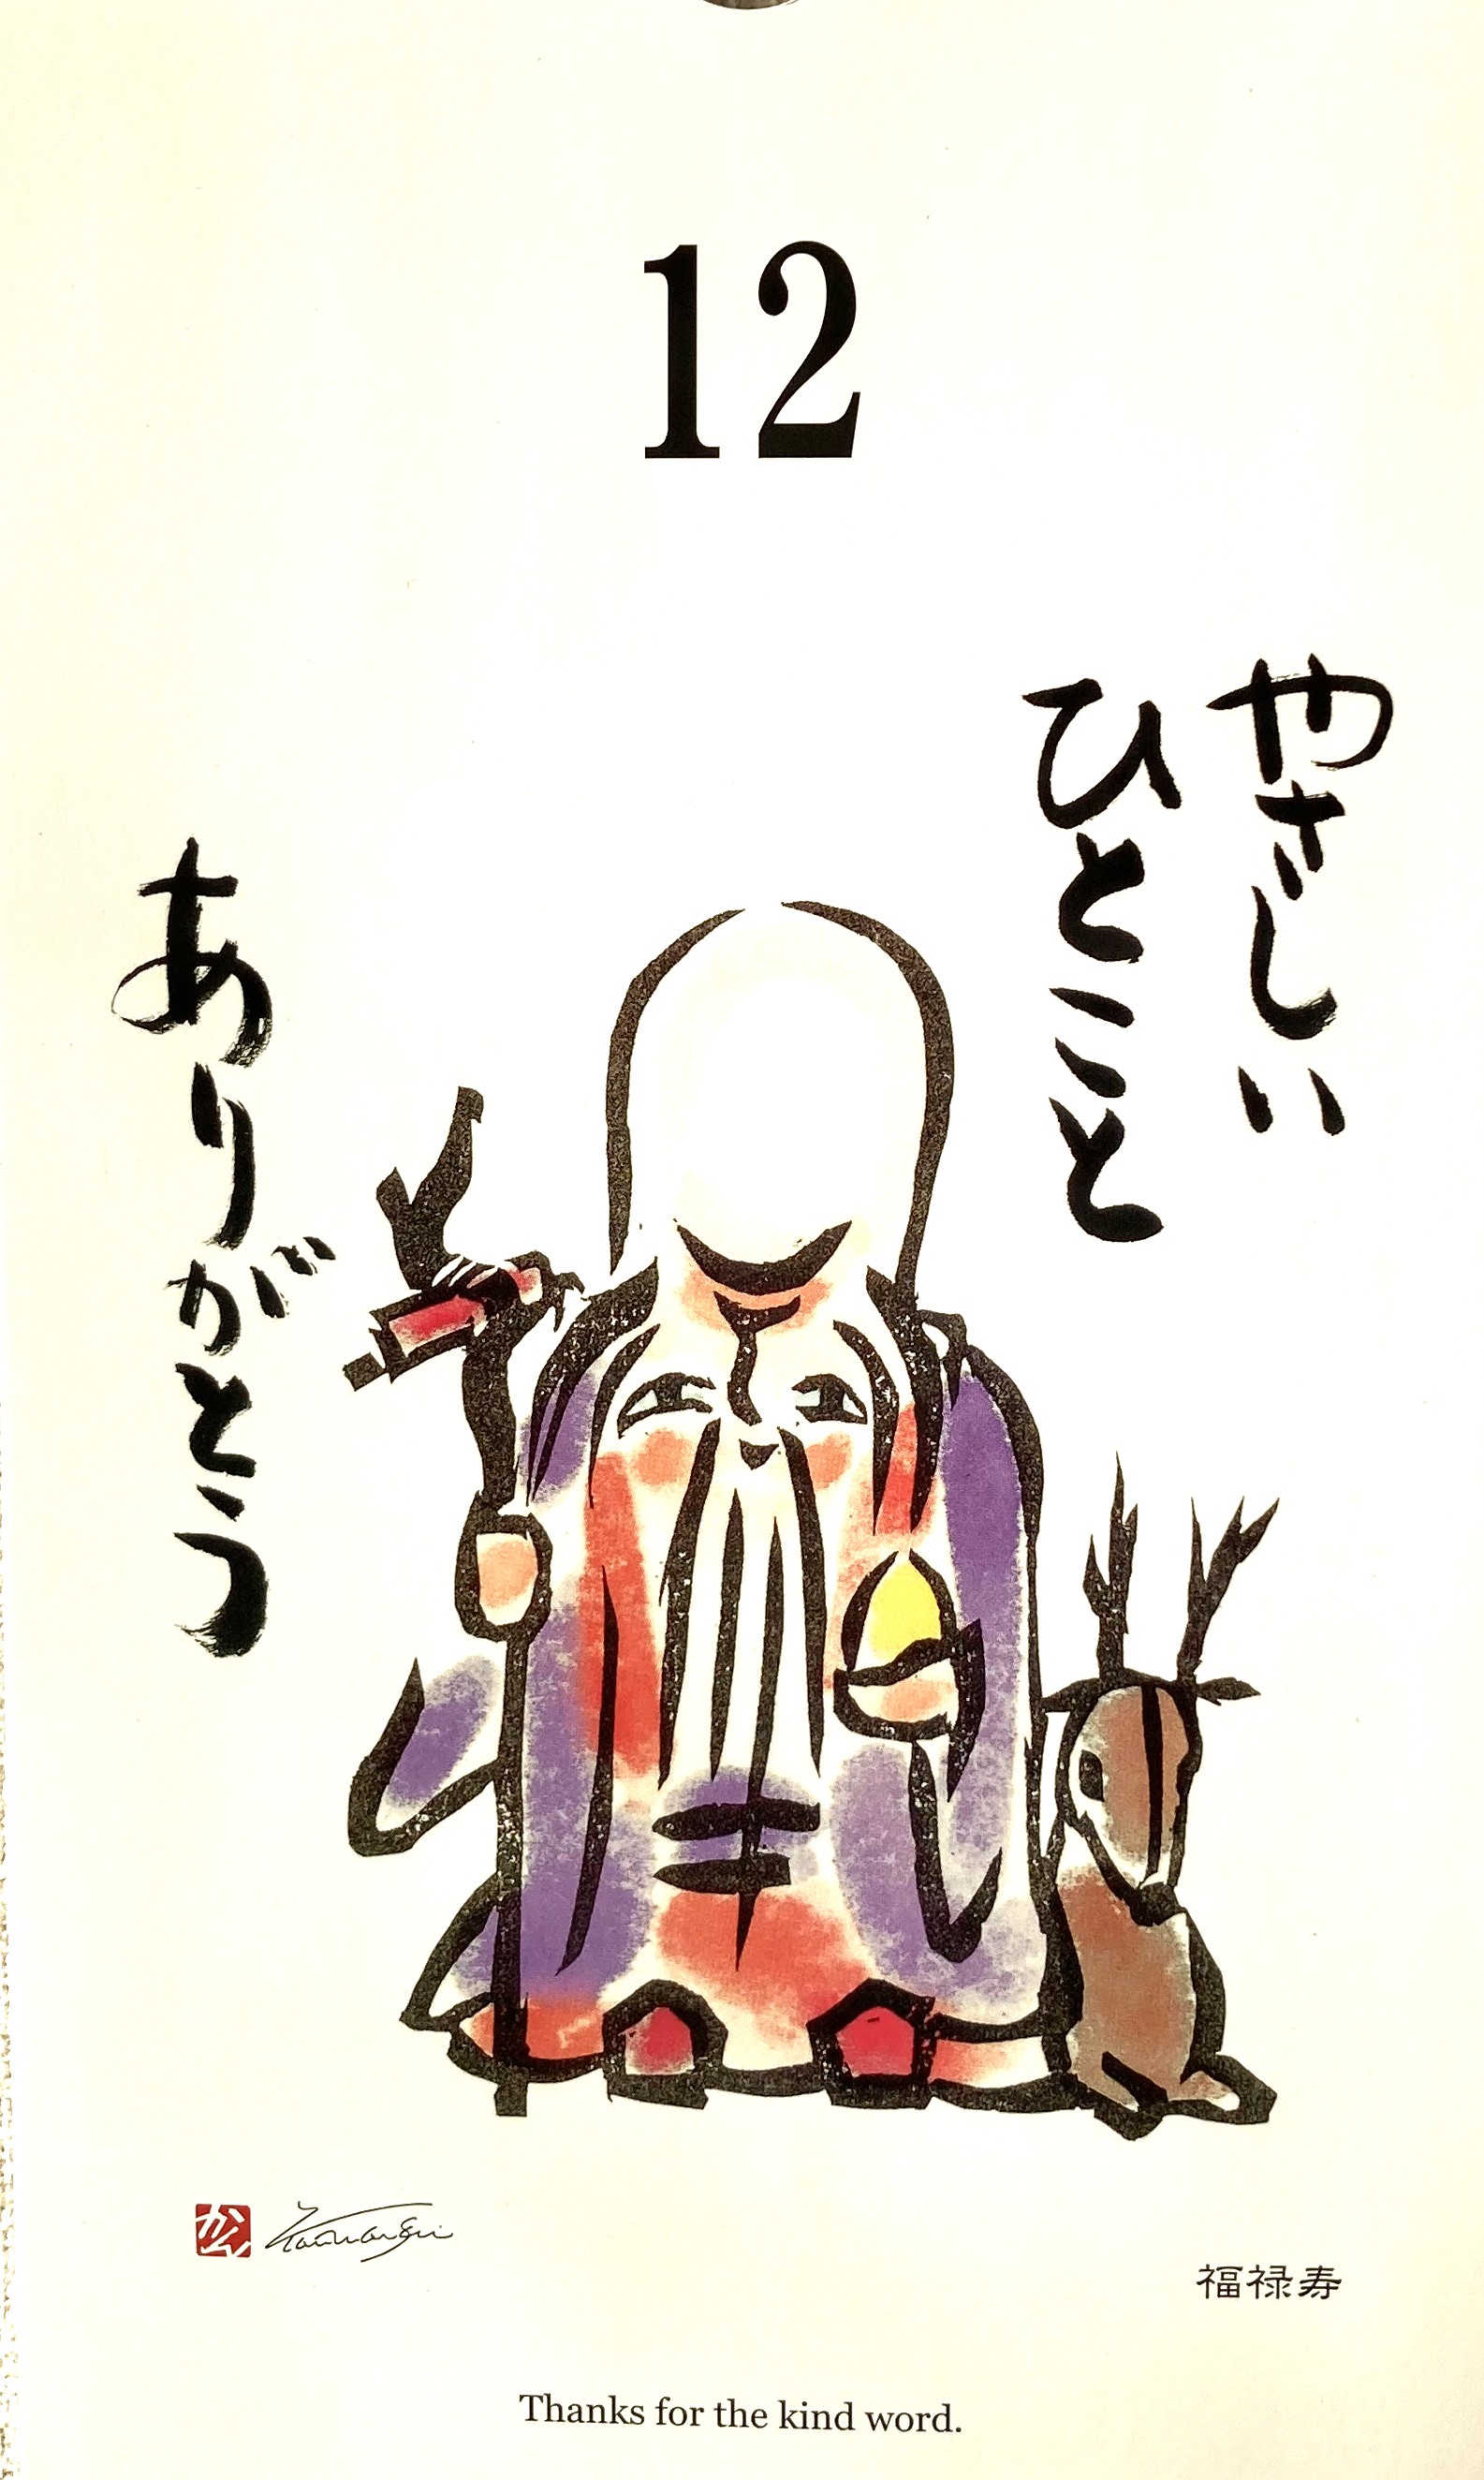 12
やさしい
ひとこと
ありがとう
福禄寿
Thanks for the kind word.